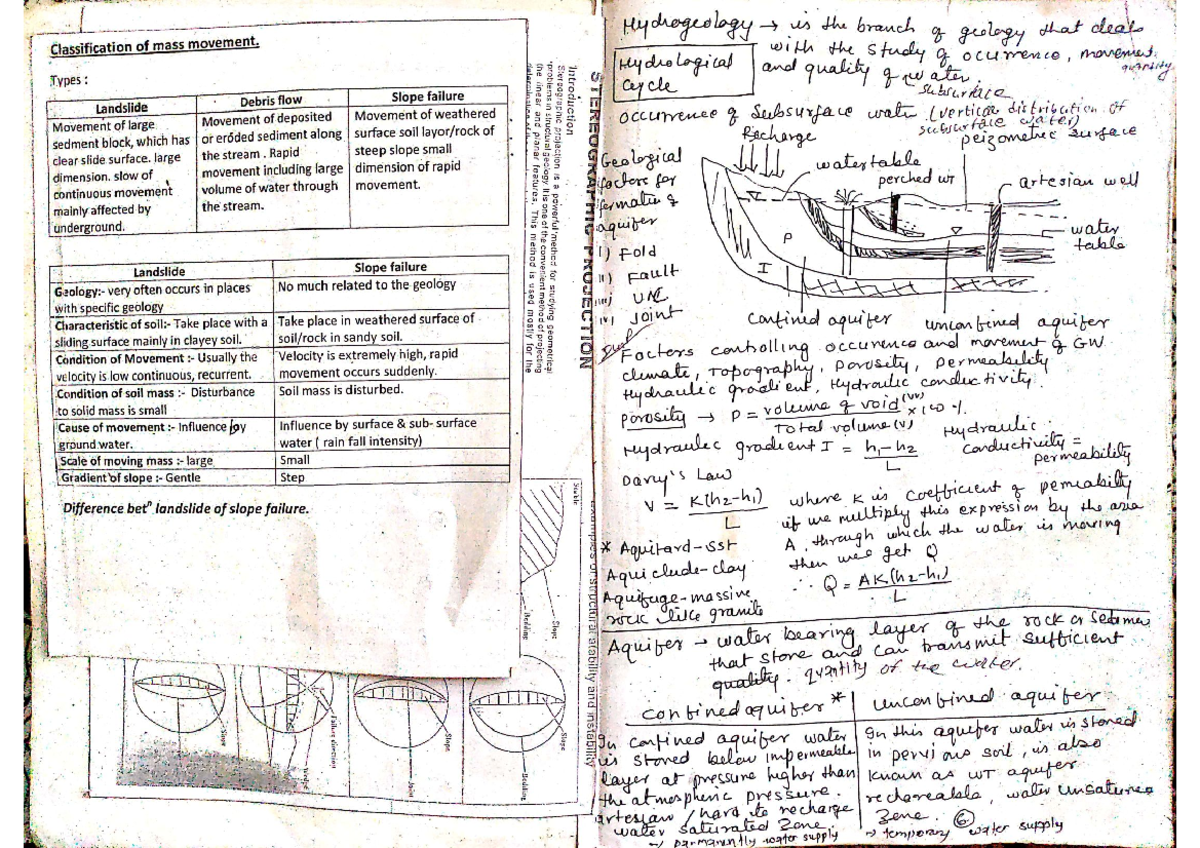 Classification of mass movement.
Types :
Landslide
Debris flow
Slope failure
Movement of large
sediment block, which has
clear slide surface. large
dimension. slow of
continuous movement
mainly affected by
underground.
Movement of deposited
or eroded sediment along
the stream . Rapid
movement including large
volume of water through
the stream.
Movement of weathered
surface soil layor/rock of
steep slope small
dimension of rapid
movement.
Landslide
Slope failure
Geology:- very often occurs in places
with specific geology
No much related to the geology
Characteristic of soil:- Take place with a
sliding surface mainly in clayey soil.
Take place in weathered surface of
soil/rock in sandy soil.
Condition of Movement :- Usually the
velocity is low continuous, recurrent.
Velocity is extremely high, rapid
movement occurs suddenly.
Condition of soil mass :- Disturbance
to solid mass is small
Soil mass is disturbed.
Cause of movement :- Influence by
ground water.
Influence by surface & sub- surface
water ( rain fall intensity)
Scale of moving mass :- large
Small
Gradient of slope :- Gentle
Step
Difference betn landslide of slope failure.
STEREOGRAPHIC PROJECTION
Introduction
Stereographic projection is a powerful method for studying geometrical
problems in structural geology. It is one of the convenient method of projecting
the linear and planar features. This method is used mostly for the
examples of structural stability and instability
Stable
Slope
Bedding
Slope
Failure direction
Slope
Slope
Joint
Slope
Bedding
Hydrogeology → is the branch of geology that deals
with the study of ocurrence, movement
and quality of water.
quantity
subsurface
Hydrological
cycle
occurrence of Subsurface water (vertical distribution of
subsurface water)
Recharge
peizometric surface
watertable
perched wt
artesian well
water
table
P
I
confined aquifer
unconfined aquifer
Geological
factors for
formation of
aquifer
i) Fold
ii) Fault
iii) UNC
iv) Joint
Factors controlling occurence and movement of GW
climate, Topography, porosity, permeability
Hydraulic gradient, Hydraulic conductivity.
porosity → P = volume of void (Vv) / Total volume (v) × 100 %.
Hydraulic gradient I = h1-h2 / L
Hydraulic
conductivity =
permeability
Darcy's Law
V = K(h2-h1) / L
where K is coefficient of permeability
if we multiply this expression by the area
A, through which the water is moving
then we get Q
∴ Q = AK(h2-h1) / L
* Aquitard-sst
Aquiclude-clay
Aquifuge-massive
rock like granite
Aquifer → water bearing layer of the rock or
that store and can transmit sufficient
quality. quantity of the water.
confined aquifer *
unconfined aquifer
In confined aquifer water
is stored below impermeable
layer at pressure higher than
the atmospheric pressure.
artesian / hard to recharge
water saturated zone
→ permanently water supply
In this aquifer water is stored
in pervious soil, is also
known as WT aquifer
rechareable, water unsaturated
zone. 6
→ temporary water supply